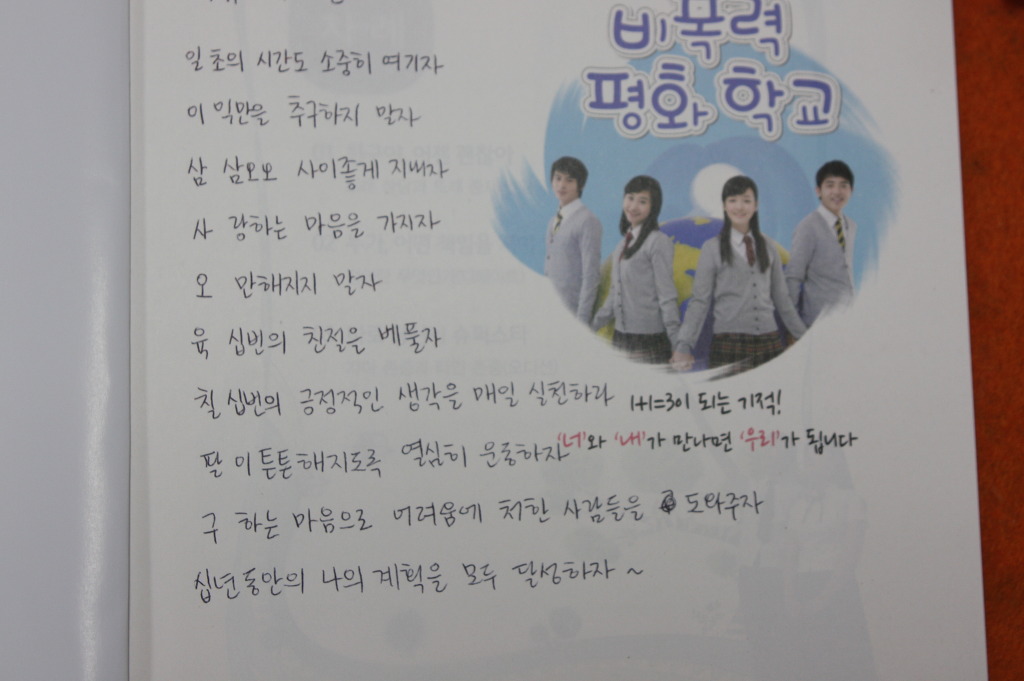 비폭력
평화 학교
일 초의 시간도 소중히 여기자
이 익만을 추구하지 말자
삼 삼오오 사이좋게 지내자
사 랑하는 마음을 가지자
오 만해지지 말자
육 십번의 친절을 베풀자
칠 십번의 긍정적인 생각을 매일 실천하라
1+1=3이 되는 기적!
팔 이 튼튼해지도록 열심히 운동하자
'너'와 '내'가 만나면 '우리'가 됩니다
구 하는 마음으로 어려움에 처한 사람들을 도와주자
십년동안의 나의 계획을 모두 달성하자 ~